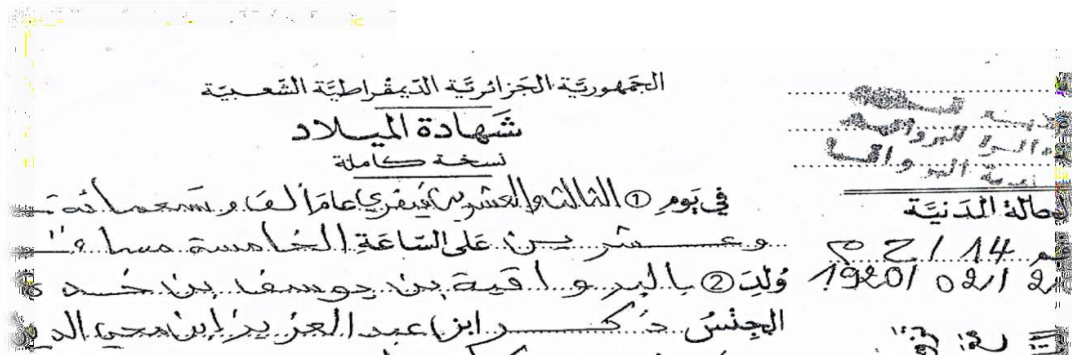 الجمهوريّة الجزائريّة الديمقراطيّة الشعبيّة
شهادة الميلاد
نسخة كاملة
ولاية المدية
دائرة البرواقية
بلدية البرواقية
الحالة المدنيّة
رقم 14 / ح م
1920/02/2
في يومِ ① الثالث والعشرين فيفري عامَ ألف وتسعمائة
وعشرين على السّاعَةِ الخامسة مساء
وُلِدَ ② بالبرواقية بن يوسف بن خدة
الجنسُ ذكر ابن عبد العزيز ابن محي الدين